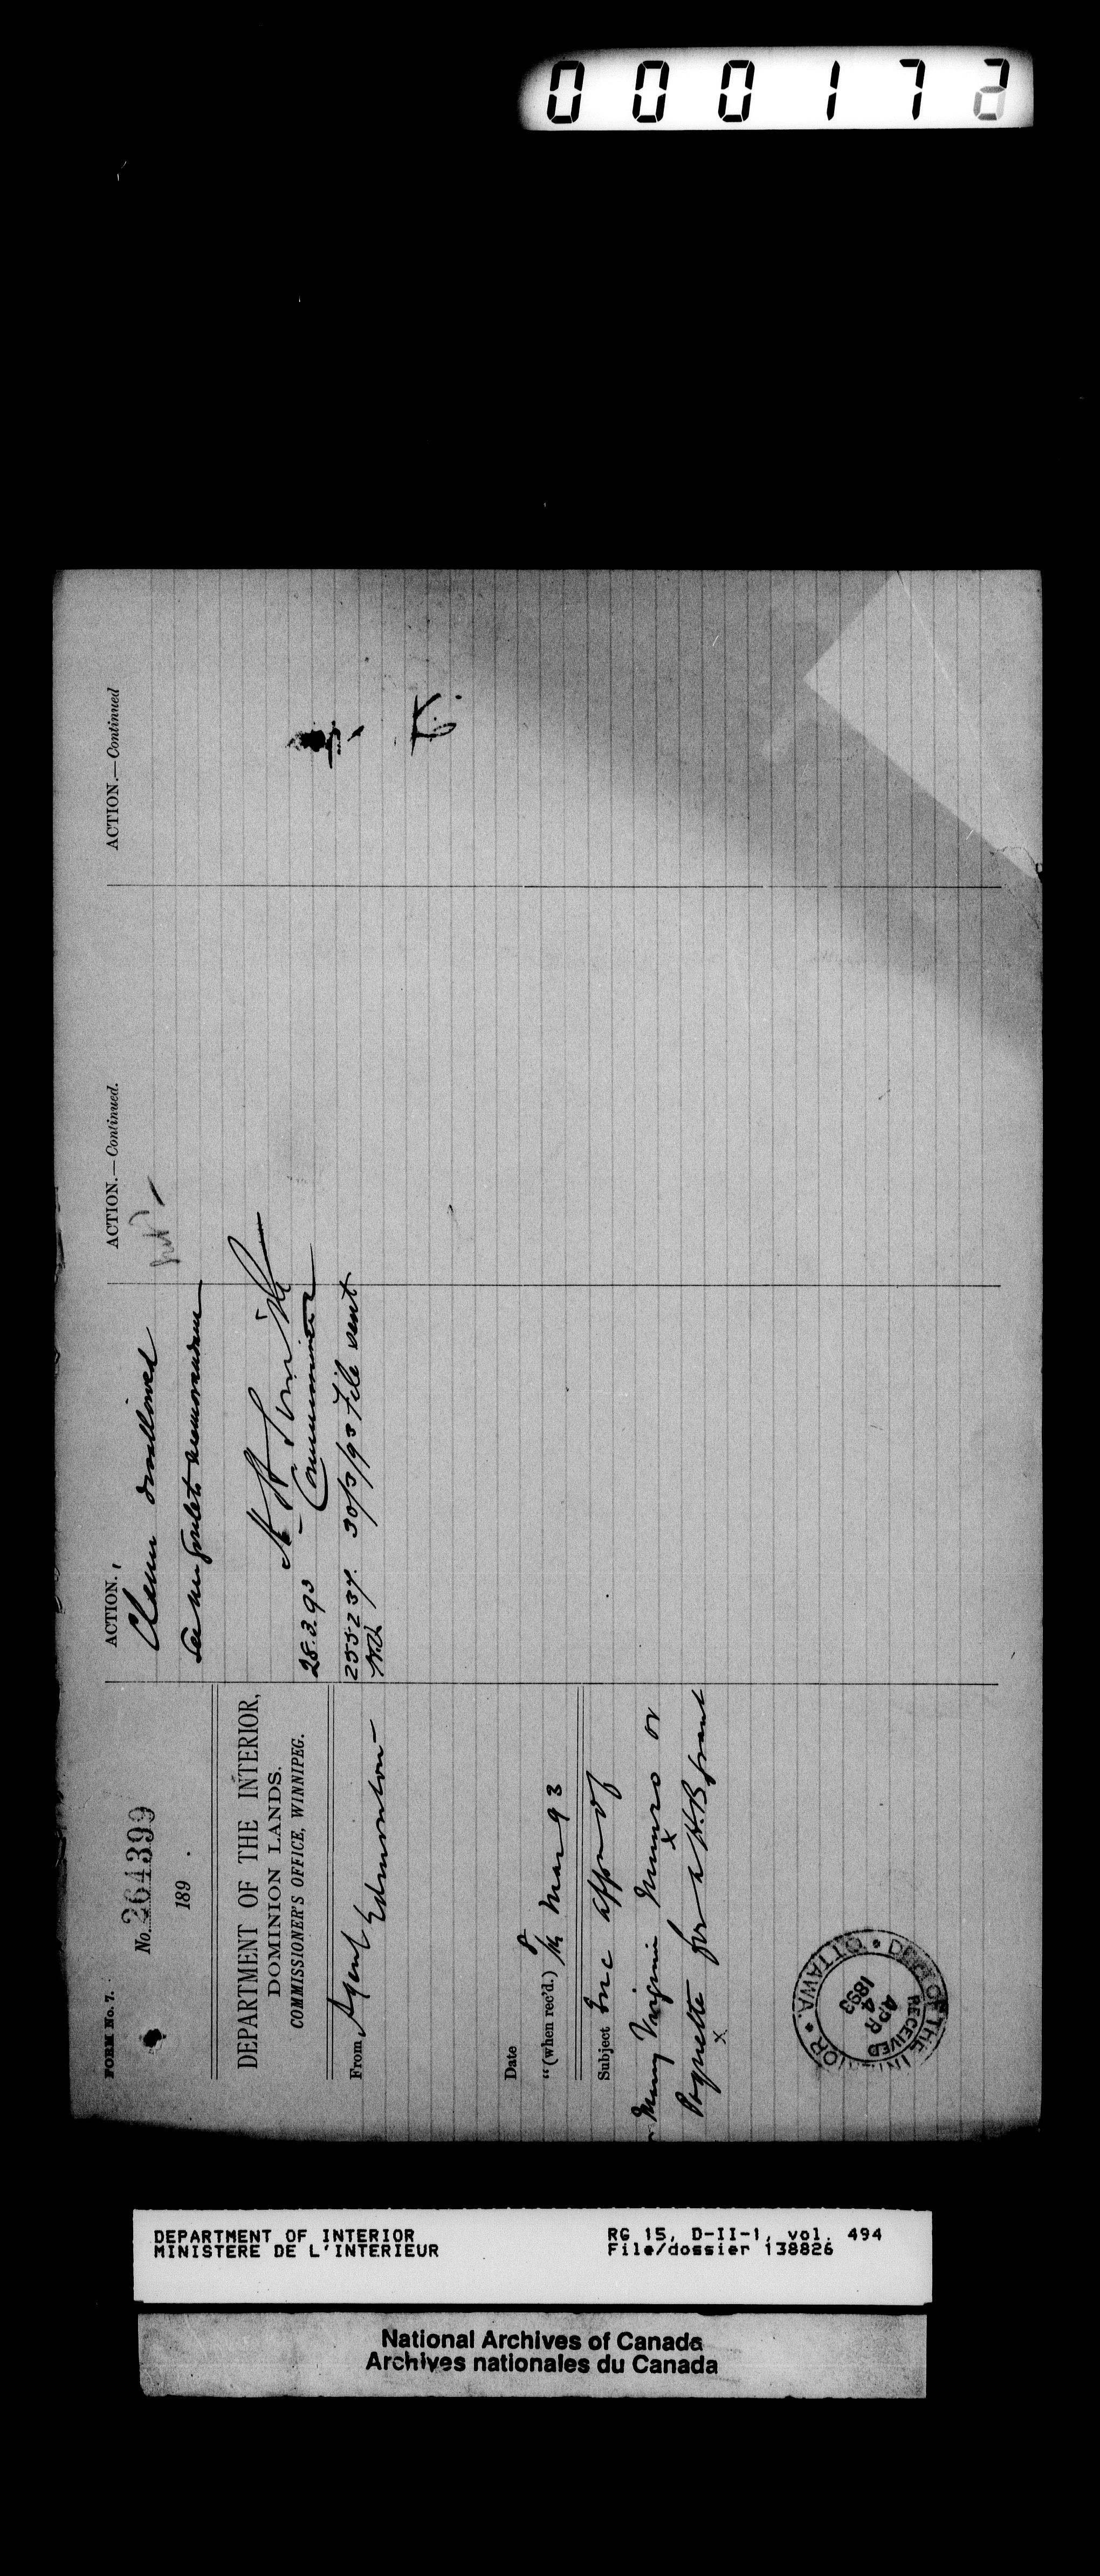 FORM No. 7.
No. 264399
189 .
DEPARTMENT OF THE INTERIOR,
DOMINION LANDS.
COMMISSIONER'S OFFICE, WINNIPEG.
From Agent Edmonton
Date
" (when rec'd.) Mar 93
Subject Enc appn of
Mary Virginie Munro or
Paquette for a H.B. grant
DEPT OF THE INTERIOR • OTTAWA •
RECEIVED
APR
4
1893
ACTION.
Claim disallowed
See Mr Goulet's memorandum
Smith
Commissioner
28.3.93
255237. 30/3/93 File sent
ACTION.—Continued.
ACTION.—Continued
K.
DEPARTMENT OF INTERIOR
MINISTERE DE L'INTERIEUR
RG 15, D-II-1, vol. 494
File/dossier 138826
National Archives of Canada
Archives nationales du Canada